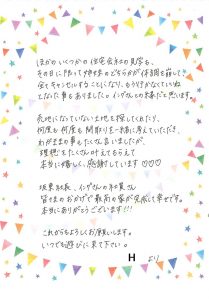 ほかのいくつかの住宅会社の見学も、
その日に限って姉妹のどちらかが体調を崩して
全てキャンセルすることになり、もう行かなくていいね
となった事もありました。イシダさんとの縁だと思います。
売地になっていない土地を探してくれたり、
何度も何度も間取りを一緒に考えていただき、
わがままな事もたくさん言いましたが、
理想をたくさん叶えてもらえて
本当に嬉しく、感謝しています♡♡♡
坂東社長、イシダさんの社員さん
皆さまのおかげで最高の家が完成して幸せです。
本当にありがとうございます!!!
これからもよろしくお願いします。
いつでも遊びに来て下さい。
H より